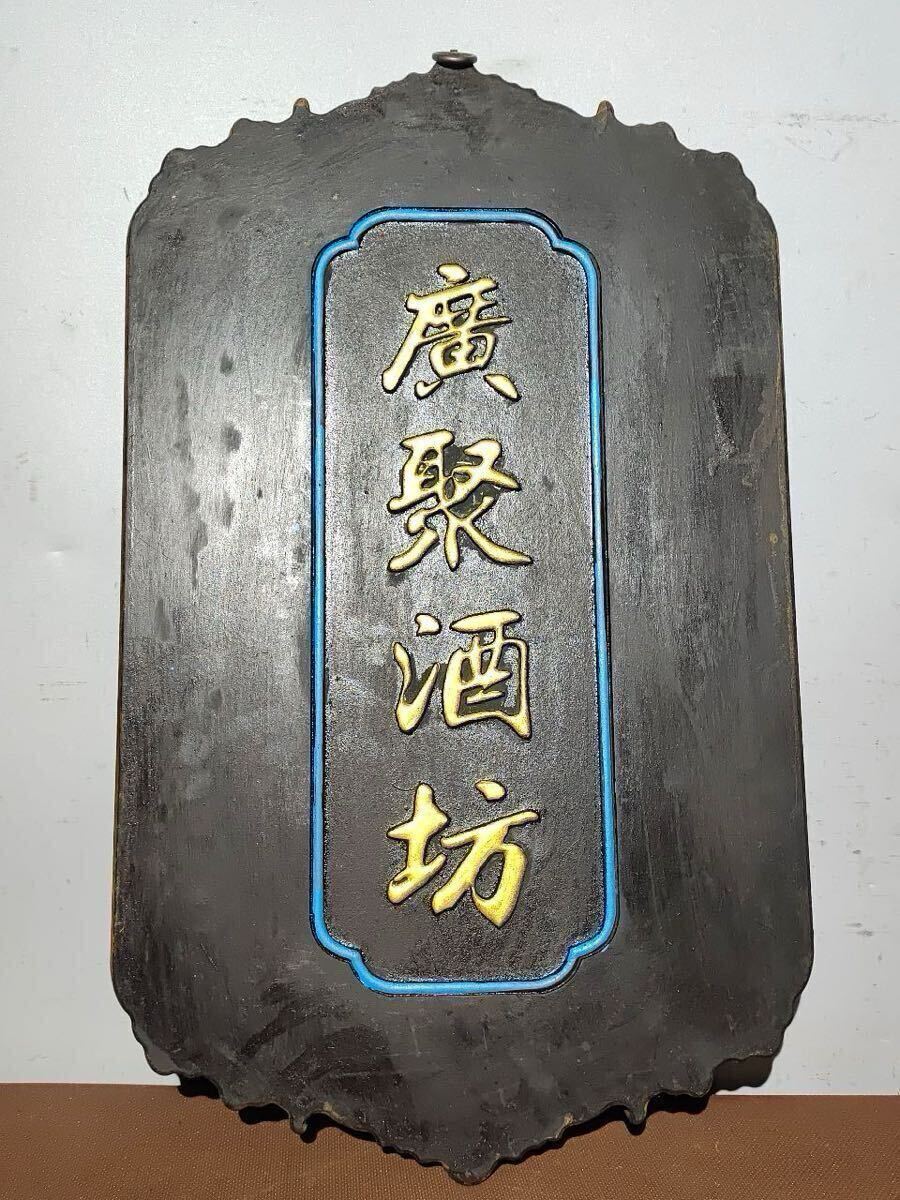 廣聚酒坊